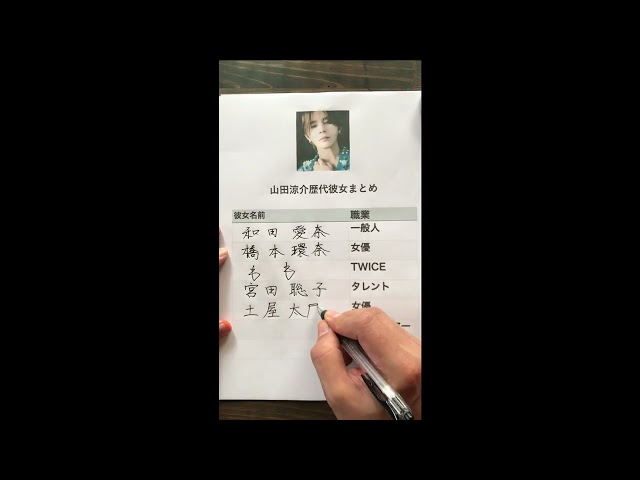 山田涼介歴代彼女まとめ
彼女名前 職業
和田 愛奈 一般人
橋本環奈 女優
もも TWICE
宮田聡子 タレント
土屋太 女優
ー